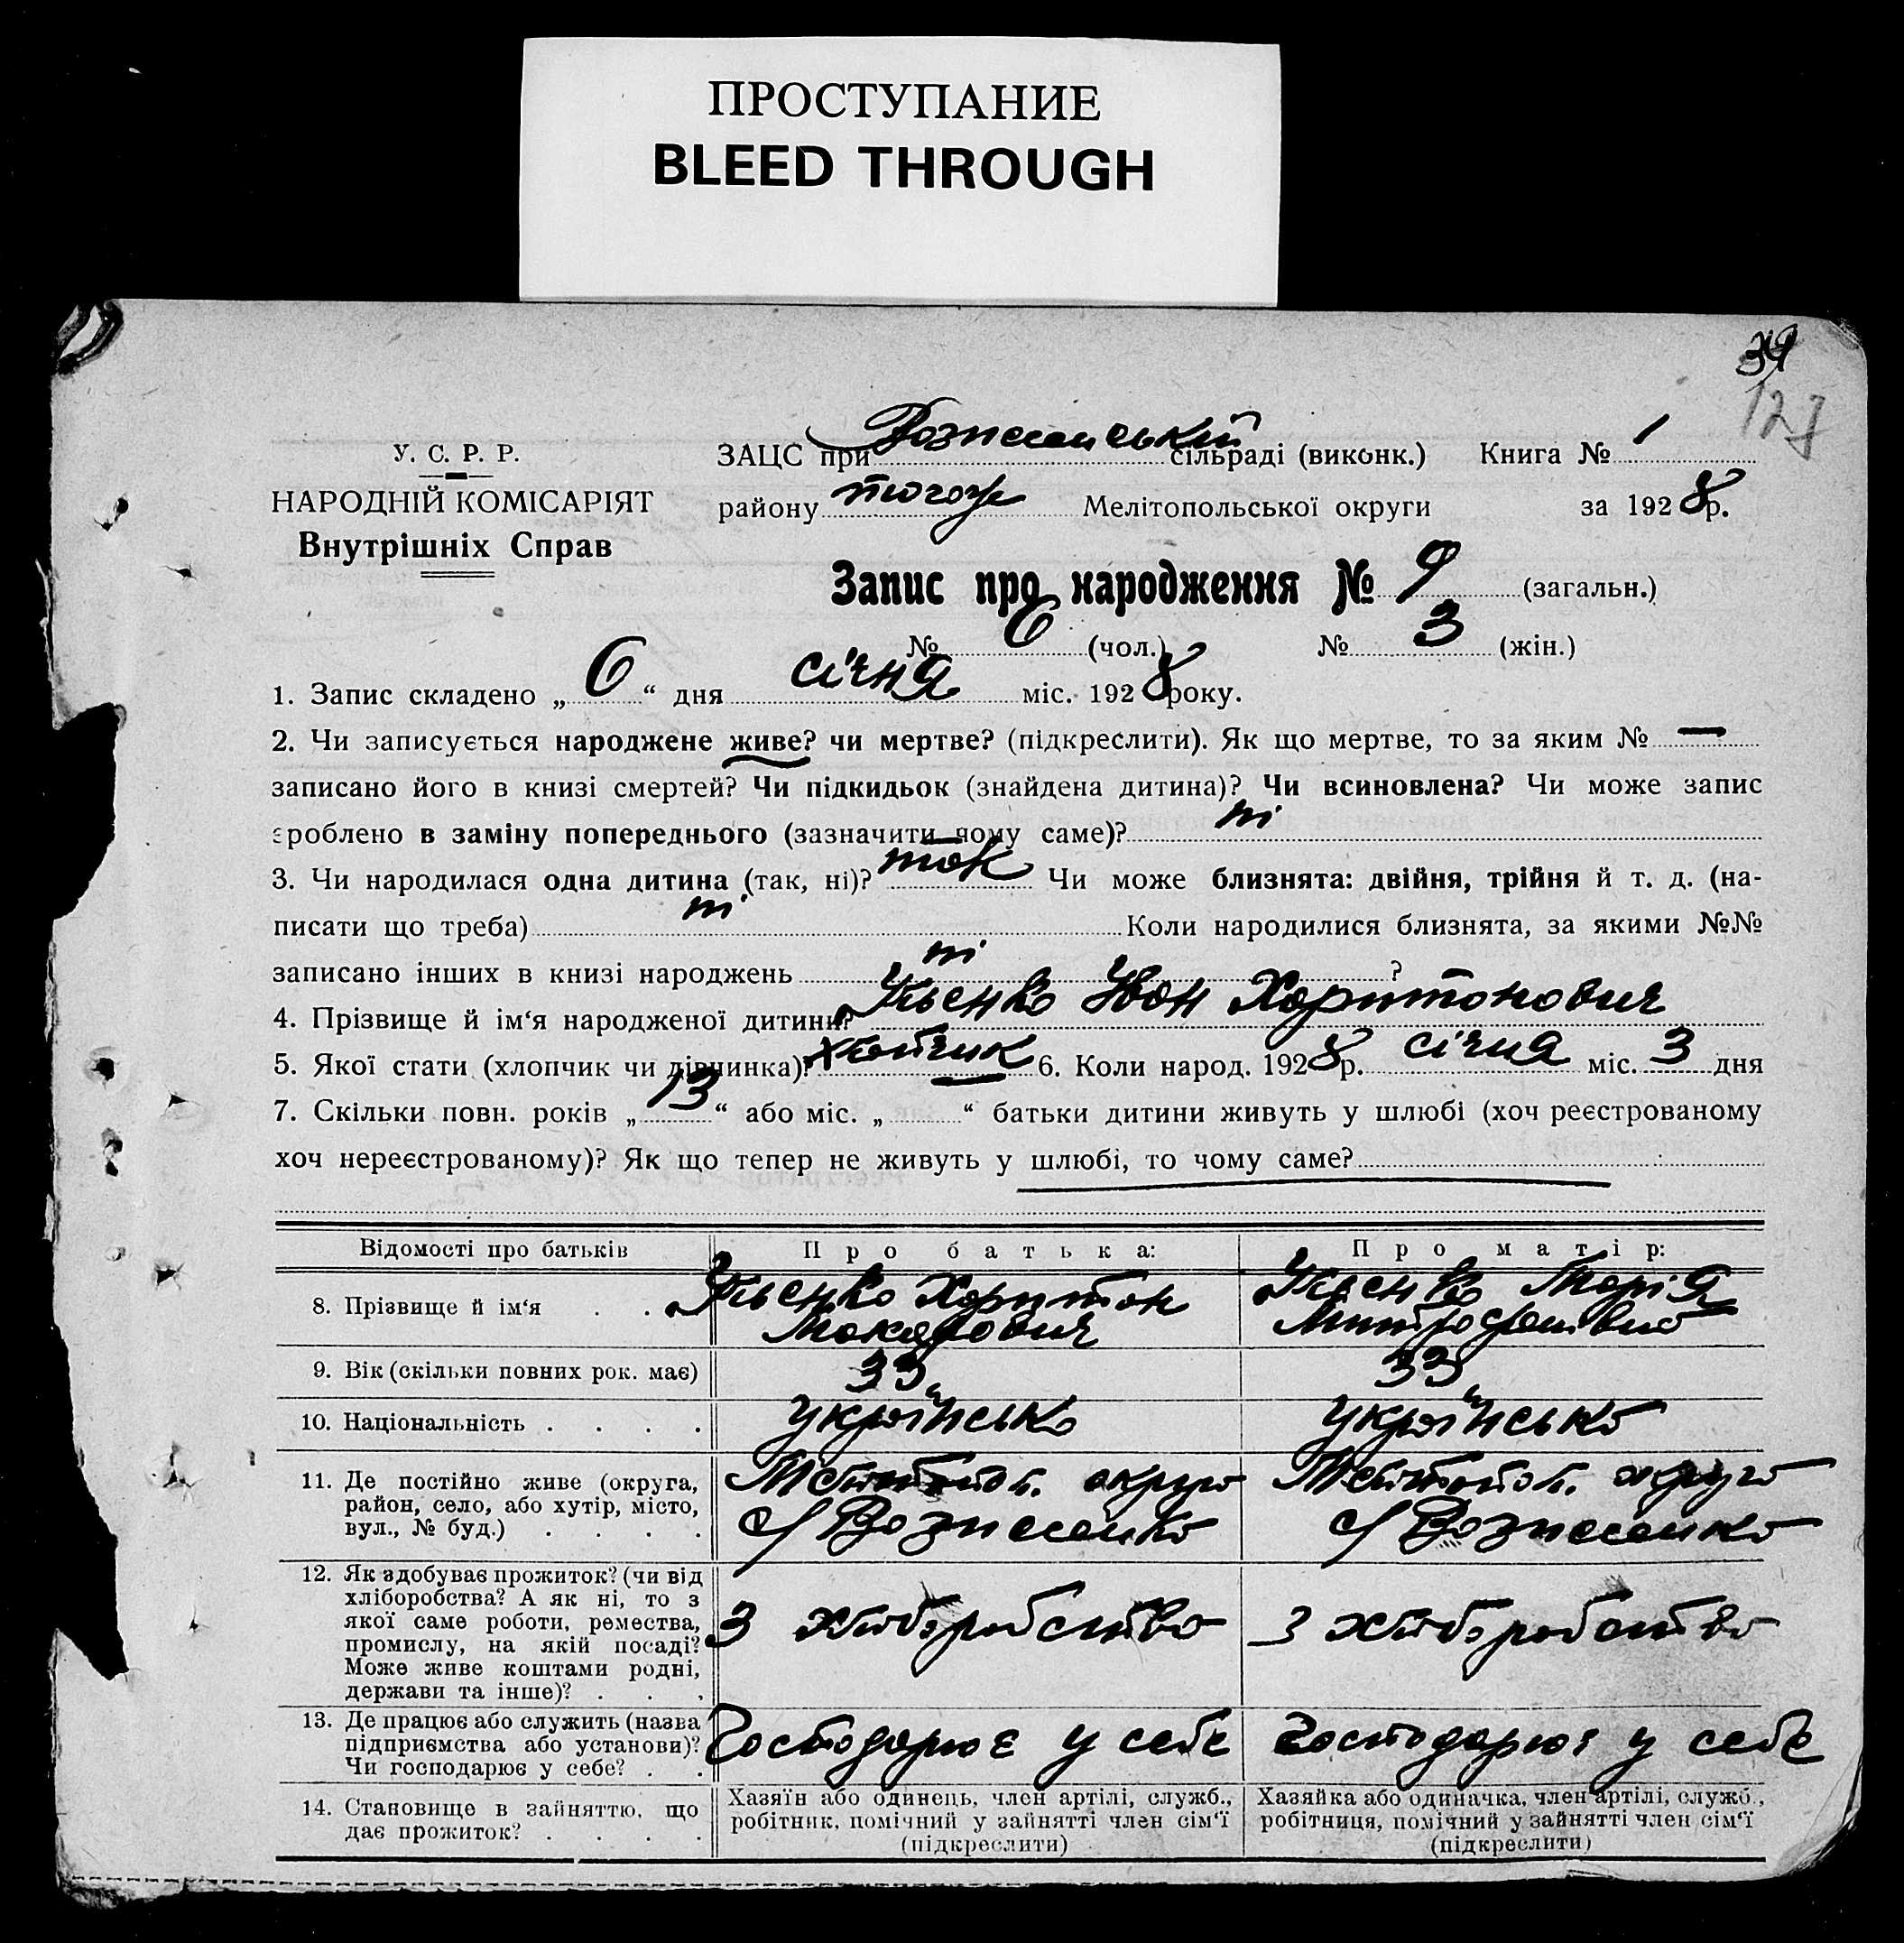 ПРОСТУПАНИЕ
BLEED THROUGH
39
127
У. С. Р. Р.
НАРОДНІЙ КОМІСАРІЯТ
Внутрішніх Справ
ЗАЦС при сільраді (виконк.) Книга № 1
району Мелітопольської округи за 1928 р.
Запис про народження № 9 (загальн.)
№ 6 (чол.) № 3 (жін.)
1. Запис складено „ 6 “ дня січня міс. 1928 року.
2. Чи записується народжене живе? чи мертве? (підкреслити). Як що мертве, то за яким № —
записано його в книзі смертей? Чи підкидьок (знайдена дитина)? Чи всиновлена? Чи може запис
зроблено в заміну попереднього (зазначити чому саме)? ні
3. Чи народилася одна дитина (так, ні)? так Чи може близнята: двійня, трійня й т. д. (на-
писати що треба) ні Коли народилися близнята, за якими №№
записано інших в книзі народжень ні ?
4. Прізвище й ім‘я народженої дитини? Іван Харитонович
5. Якої стати (хлопчик чи дівчинка)? хлопчик 6. Коли народ. 1928 р. січня міс. 3 дня
7. Скільки повн. років „ 13 “ або міс. „ “ батьки дитини живуть у шлюбі (хоч реєстрованому
хоч нереєстрованому)? Як що тепер не живуть у шлюбі, то чому саме?
Відомості про батьків Про батька: Про матір:
8. Прізвище й ім‘я . . Харитон Марія
Макарович Митрофанівна
9. Вік (скільки повних рок. має) 33 33
10. Національність . . . . українська українська
11. Де постійно живе (округа, Мелітопол. округа Мелітопол. округа
район, село, або хутір, місто, с/ Вознесенка с/ Вознесенка
вул., № буд.) . . . .
12. Як здобуває прожиток? (чи від
хліборобства? А як ні, то з
якої саме роботи, ремества, З хліборобства З хліборобства
промислу, на якій посаді?
Може живе коштами родні,
держави та інше)? . . .
13. Де працює або служить (назва
підприємства або установи)? Господарює у себе господарює у себе
Чи господарює у себе? . .
14. Становище в зайняттю, що Хазяїн або одинець, член артілі, служб., Хазяйка або одиначка, член артілі, служб.,
дає прожиток? . . . . робітник, помічний у зайнятті член сім‘ї робітниця, помічний у зайнятті член сім‘ї
(підкреслити) (підкреслити)